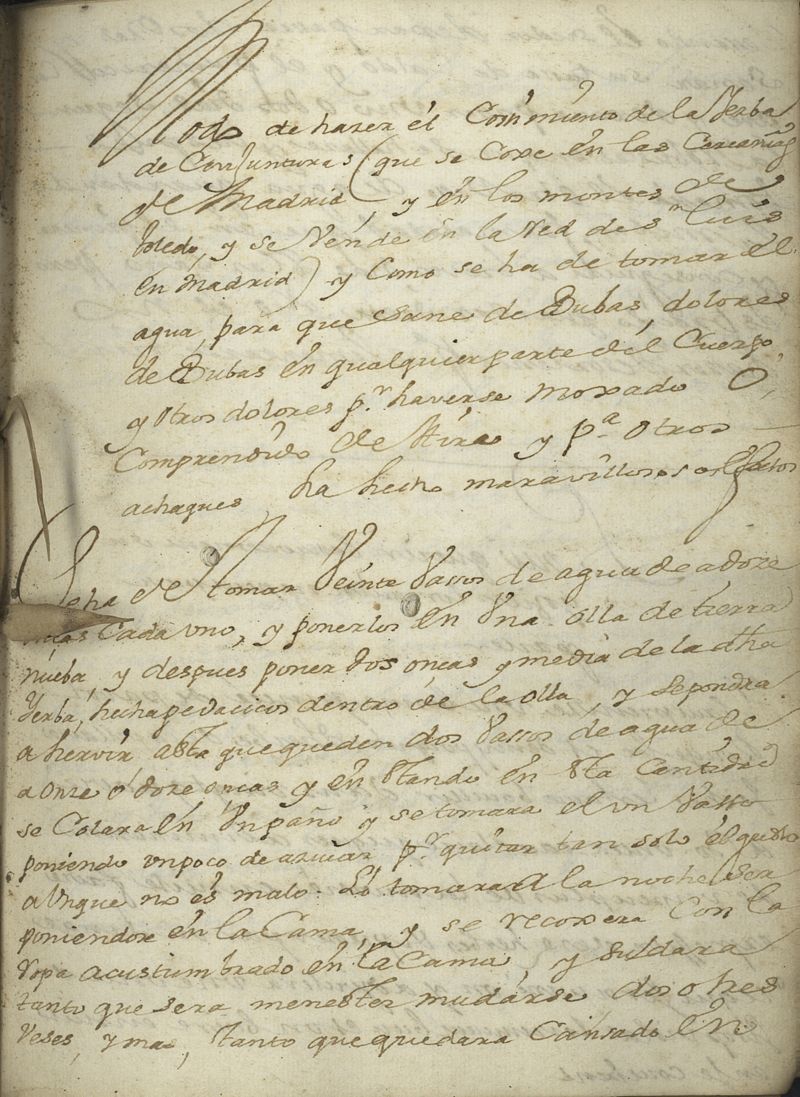 Modo de hazer el Comimiento de la Yerba
de Conjunturas (que se Coxe en las Cercanias
de Madrid, y en los montes de
toledo, y se Vende en la Red de Sn Luis
en Madrid) y Como se ha de tomar el
agua, para que sane de Bubas, dolores
de Bubas en qualquier parte del Cuerpo
y otros dolores pr. haverse moxado O,
Comprendido de Aire y pa. otros
achaques, ha hecho maravillosos effectos
Se ha de tomar Veinte Vassos de agua de a doze
onzas Cada uno, y ponerlos en Vna olla de tierra
nueba, y despues poner dos onzas y media de la dha
Yerba, hecha pedacicos dentro de la olla, y se pondra
a hervir asta que queden dos Vassos de agua de
a onze o doze onzas y en Stando en Sta Cantidad
se Colara en Un paño y se tomara el vn Vasso
poniendo vn poco de azucar, pr. quitar tan solo el gusto
aUnque no es malo. Lo tomara a la noche
poniendose en la Cama, y se recoxera Con la
Ropa acustumbrado en la Cama, y sudara
tanto que sera menester mudarse, dos o tres
Veses, y mas, tanto que quedara Cansado en